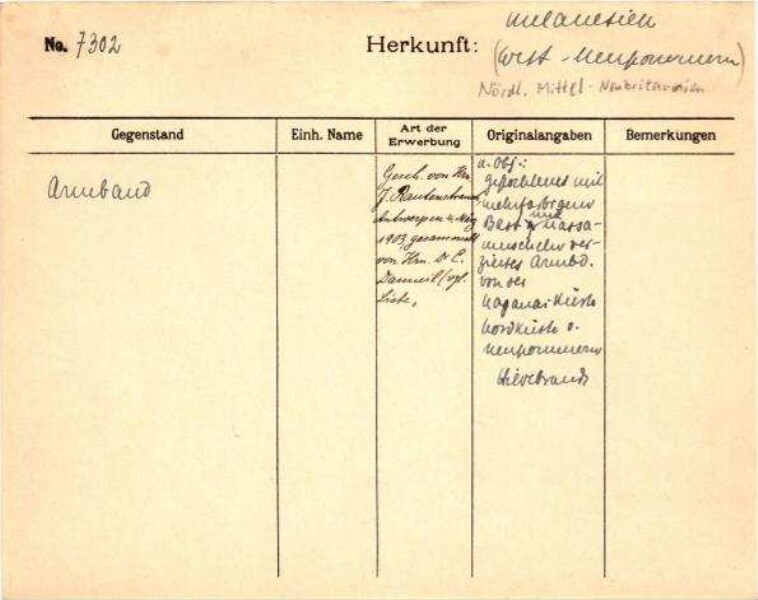 No. 7302
Herkunft: Melanesien
(West-Neupommern)
Nördl. Mittel-Neubritannien
Gegenstand
Einh. Name
Art der Erwerbung
Originalangaben
Bemerkungen
Armband
Gesch. von Hrn
J. Rautenstrauch
Antwerpen 4. März
1903, gesammelt
von Hrn. Dr C.
Danneil (vgl.
Liste,
a. Obj.:
geflochtenes mit
mehrfarbigem
Bast und Nassa-
muscheln ver-
ziertes Armbd.
von der
Küste
Nordküste v.
Neupommern
Hildebrandt